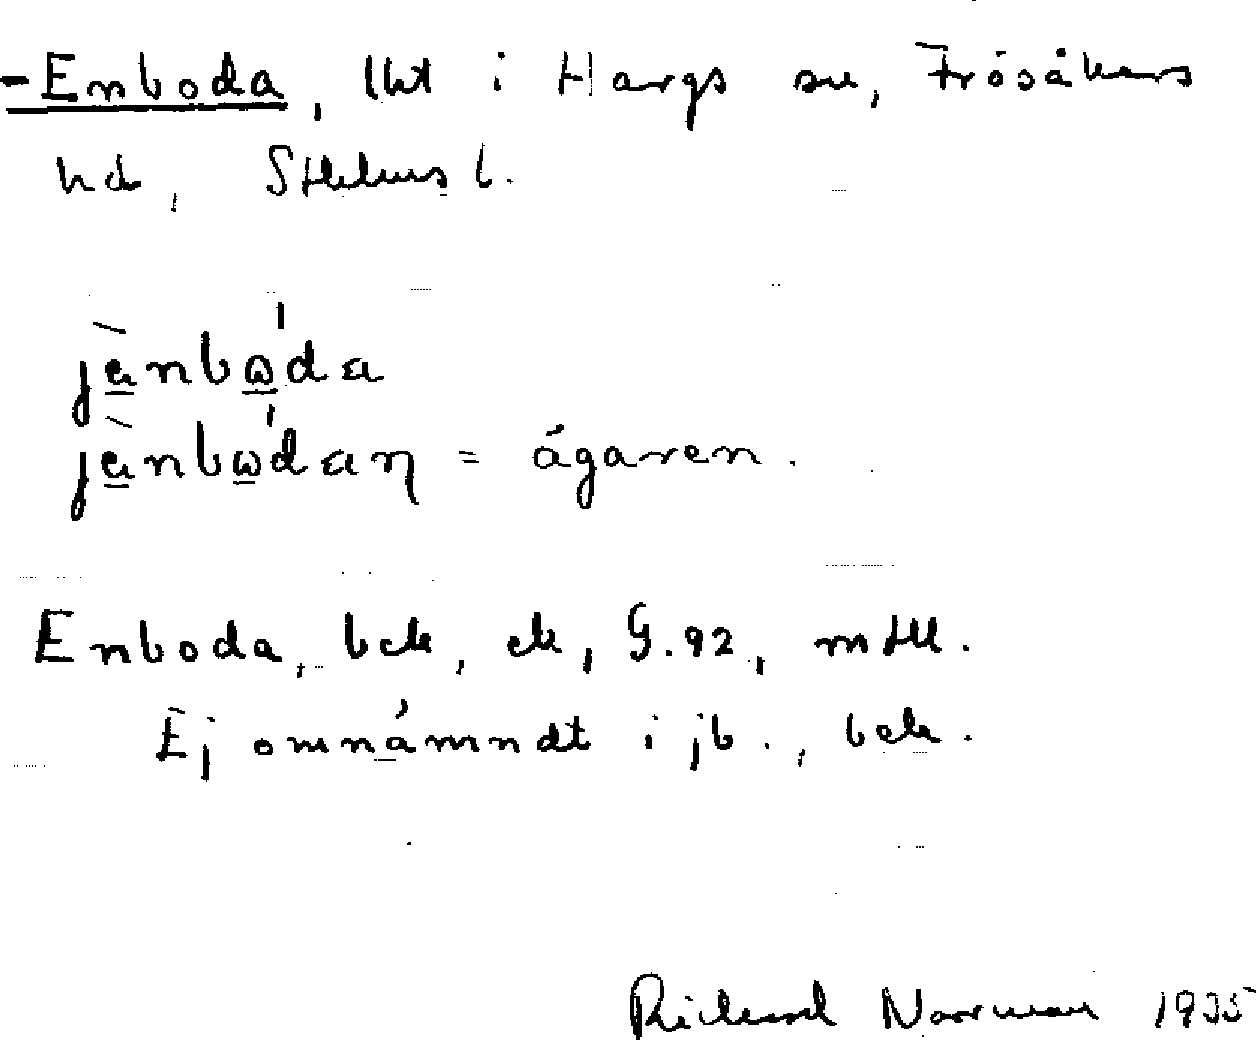 Enboda, lht i Hargs sn, Frösåkers
hd, Sthlms l.
jànbω'da
jànbω'daη = ägaren.
Enboda, bek, ek, G.92, mtll.
Ej omnämndt i jb., bek.
Richard Norrman 1935